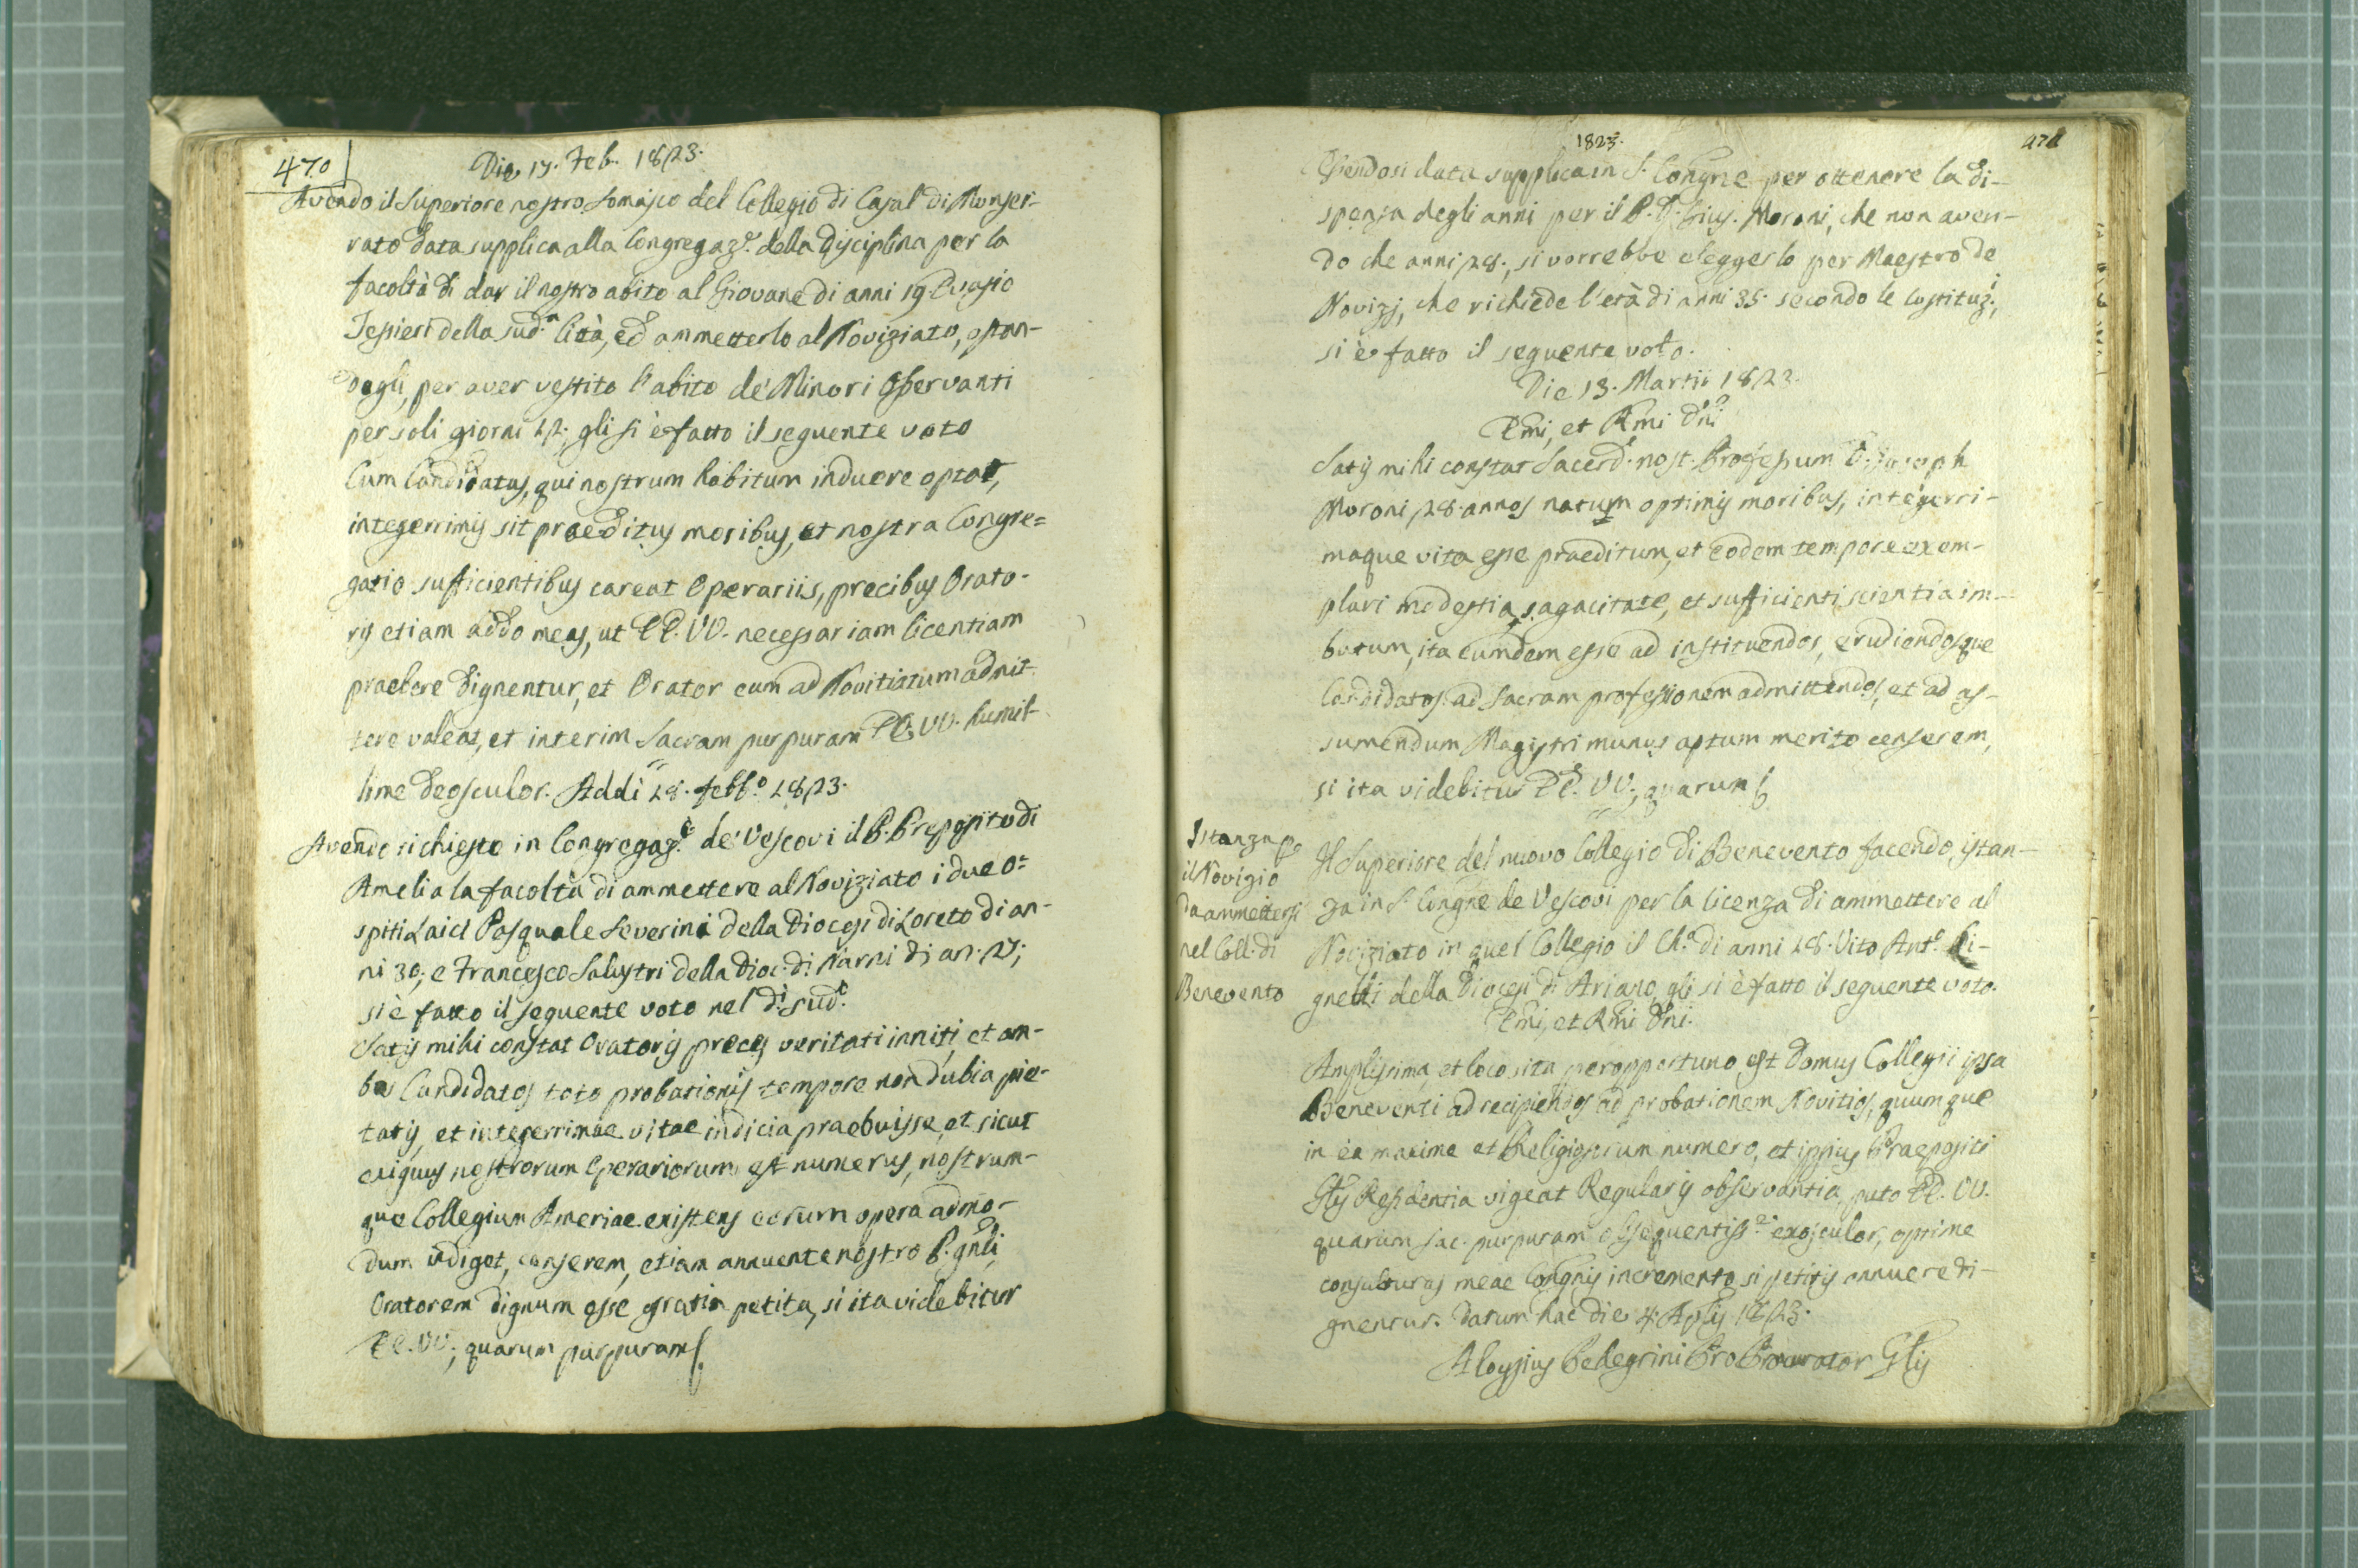 470
Die 17. Feb. 1823.
Avendo il Superiore nostro Somasco del Collegio di Casal di Monfer-
rato data supplica alla Congregaz.e della Disciplina per la
facoltà di dar il nostro abito al Giovane di anni 19 Evasio
Tessieri della sud.a Città, ed ammetterlo al Noviziato, ostan-
dogli, per aver vestito l'abito de' Minori Osservanti
per soli giorni 12, gli si è fatto il seguente voto
Cum Candidatus, qui nostrum habitum induere optat,
integerrimis sit praeditus moribus, et nostra Congre=
gatio sufficientibus careat Operariis, precibus Orato-
ris etiam addo meas, ut EE. VV. necessariam licentiam
praebere dignentur, et Orator eum ad Novitiatum admit-
tere valeat, et interim Sacram purpuram EE. VV. humil-
lime deosculor. Addi 18. febb.o 1823.
Avendo richiesto in Congregaz.e de' Vescovi il P. Preposito di
Amelia la facoltà di ammettere al Noviziato i due O=
spiti Laici Pasquale Severini della Diocesi di Loreto di an-
ni 30, e Francesco Salustri della Dioc. di Narni di an.
si è fatto il seguente voto nel dì sud.o
Satis mihi constat Oratoris preces veritati inniti, et am-
bos Candidatos toto probationis tempore non dubia pie-
tatis, et integerrimae vitae indicia praebuisse, et sicut
exiguus nostrorum Operariorum est numerus, nostrum-
que Collegium Ameriae existens eorum opera admo-
dum indiget, censerem, etiam annuente nostro P. Gnli,
Oratorem dignum esse gratia petita, si ita videbitur
EE. VV., quarum purpuram
1823.
471
Essendosi data supplica in S. Congne per ottenere la di-
spensa degli anni per il P. D. Gius. Moroni, che non aven-
do che anni 28., si vorrebbe eleggerlo per Maestro de
Novizj, che richiede l'età di anni 35. secondo le Costituz.i,
si è fatto il seguente voto.
Die 13. Martii 1823.
Emi, et Rmi Dni
Satis mihi constat Sacerd. nost. Professum D. Joseph
Moroni 28 annos natum optimis moribus, integerri-
maque vita esse praeditum, et eodem tempore exem-
plari modestia, sagacitate, et sufficienti scientia im-
butum, ita eumdem esse ad instituendos, erudiendosque
Candidatos ad Sacram professionem admittendos, et ad as-
sumendum Magistri munus aptum merito censerem,
si ita videbitur EE. VV., quarum
Istanza pe
il Novizio
da ammettersi
nel Coll. di
Benevento
Il Superiore del nuovo Collegio di Benevento facendo istan-
za in S. Congne de Vescovi per la licenza di ammettere al
Noviziato in quel Collegio il Ch.o di anni 18. Vito Ant.o Pi-
gnelli della Diocesi di Ariano, gli si è fatto il seguente voto.
Emi, et Rmi Dni.
Amplissima, et loco sita peropportuno, est Domus Collegii ipsa
Beneventi ad recipiendos ad probationem Novitios, quumque
in ea maxime et Religiosorum numero, et ipsius Praepositi
Glis Residentia vigeat Regularis observantia, puto EE. VV.
quarum Sac. purpuram obsequentiss.e exosculor, optime
consulturas meae Congnis incremento si petitis annuere di-
gnentur. Datum hac die 4. Aplis 1823.
Aloysius Pelegrini Pro Procurator Glis